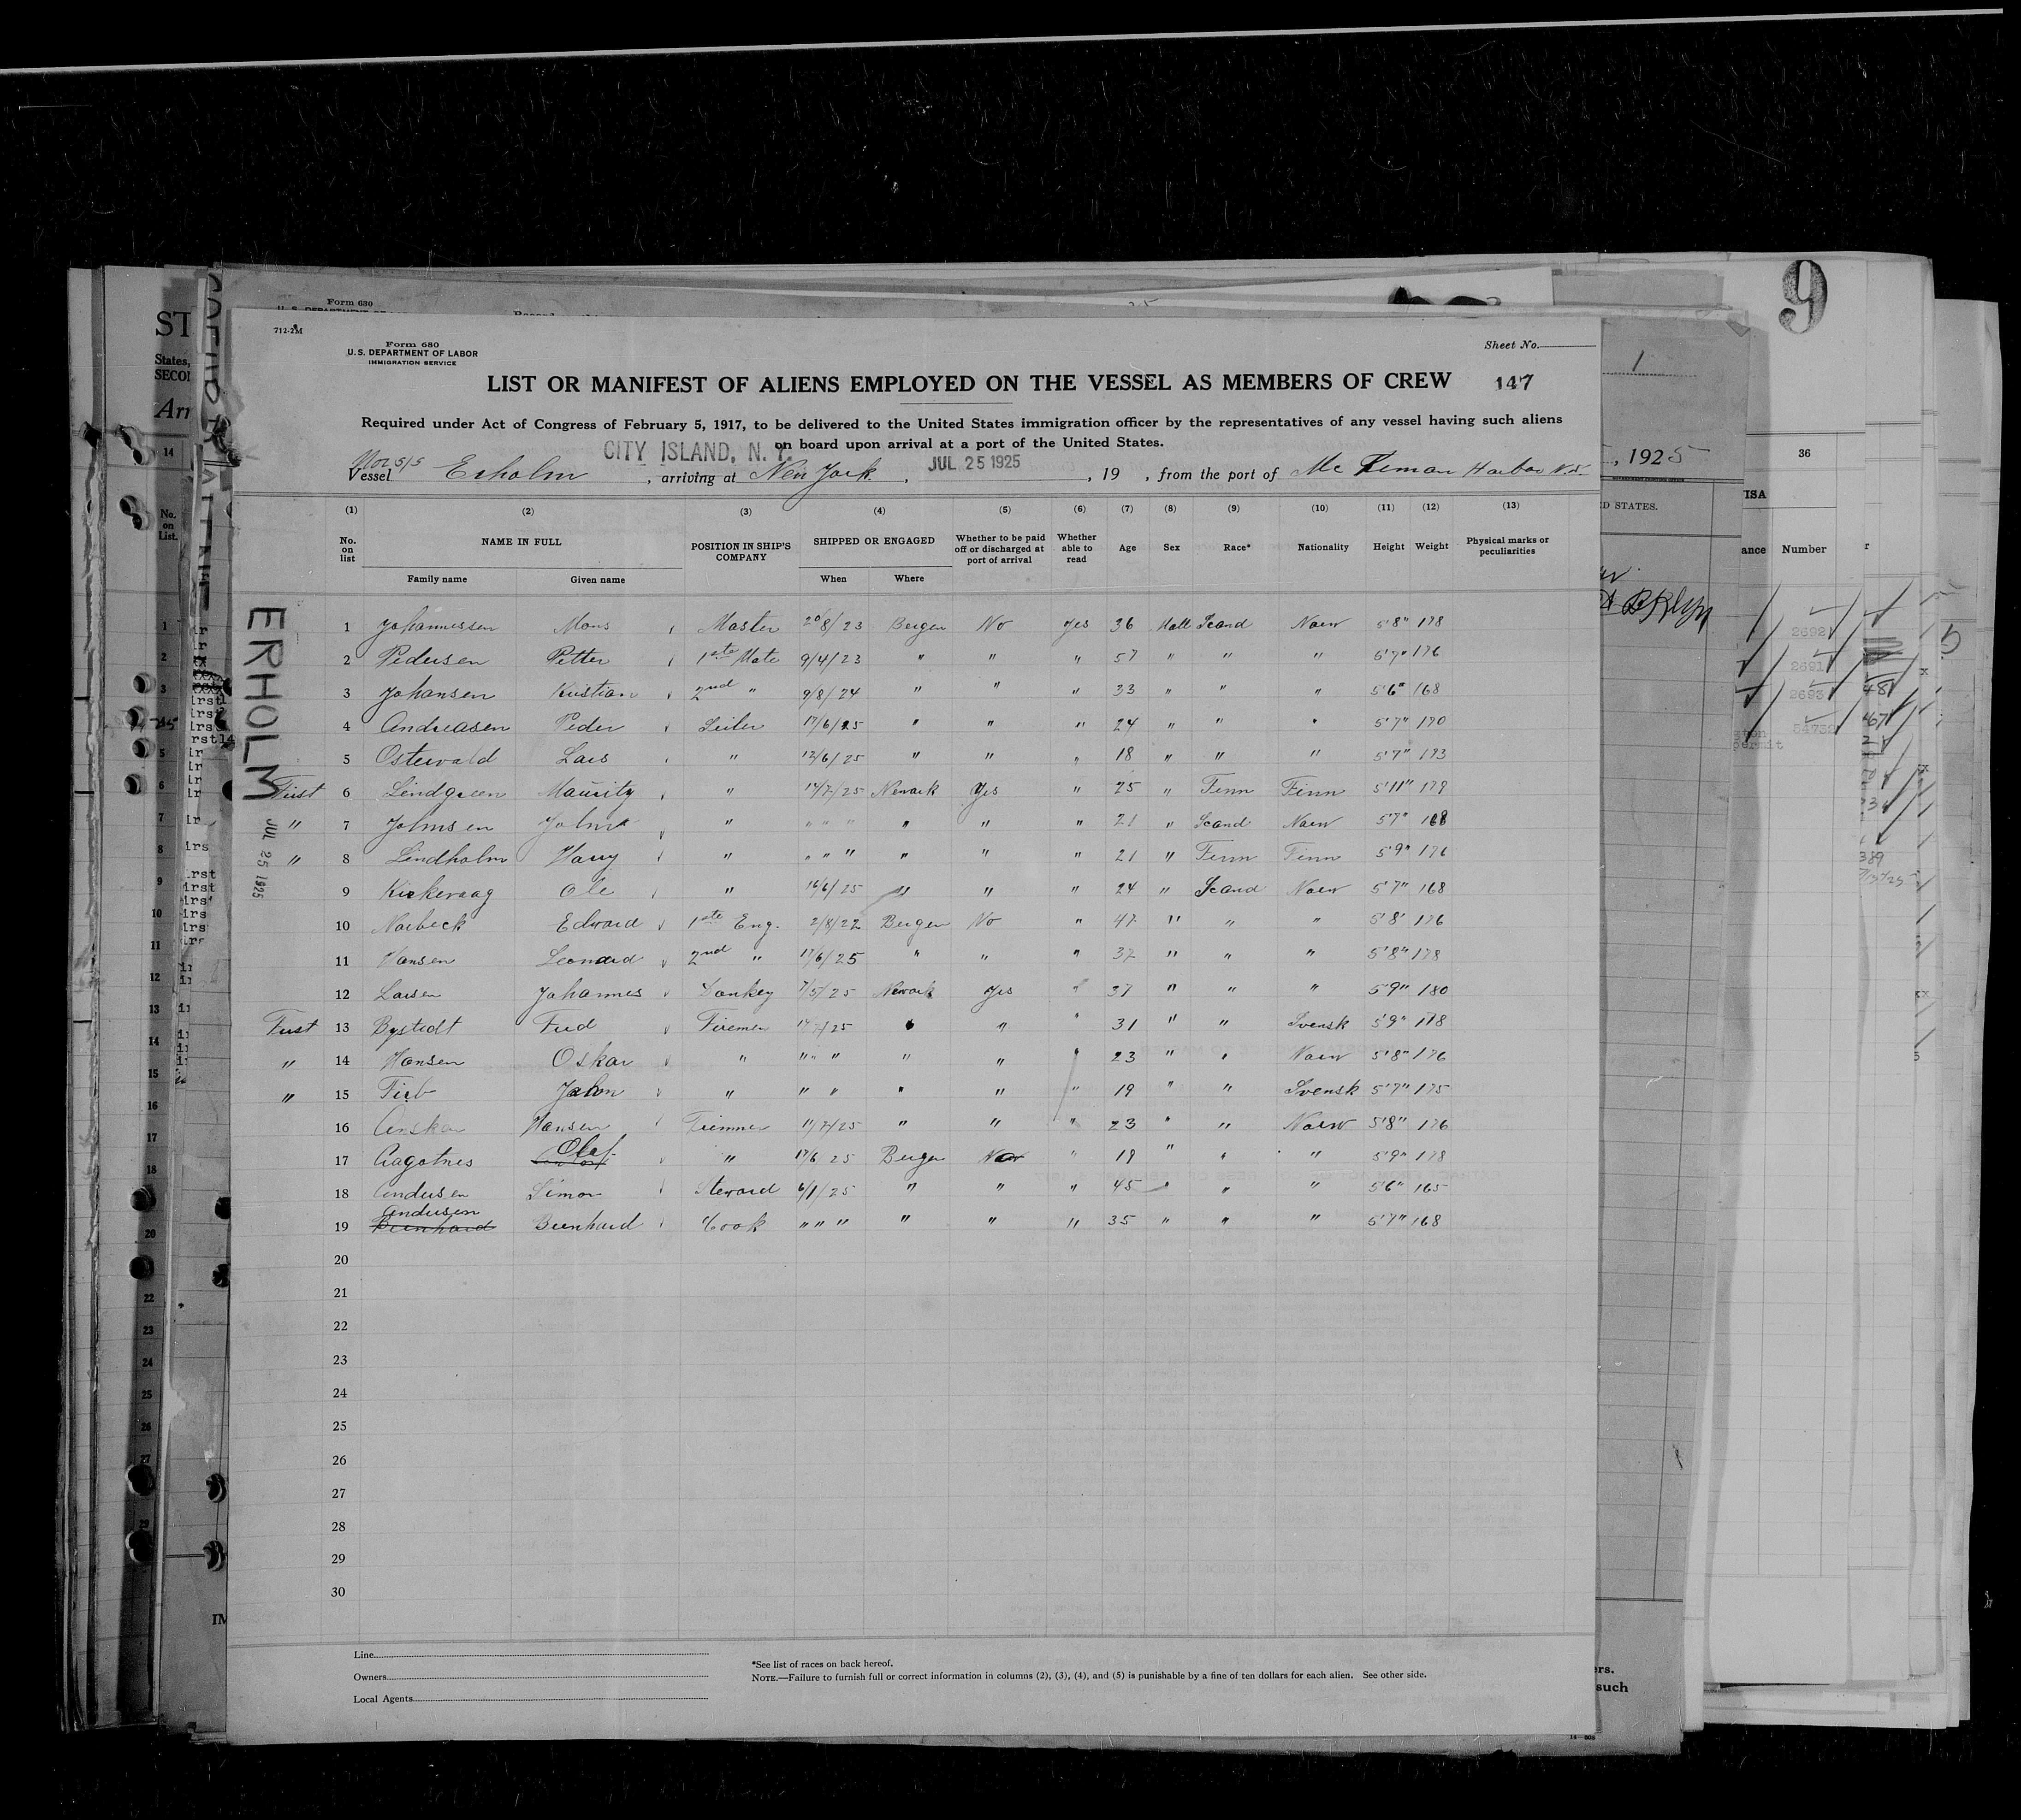 712-2M
Form 680
U.S. DEPARTMENT OF LABOR
IMMIGRATION SERVICE
Sheet No.
LIST OR MANIFEST OF ALIENS EMPLOYED ON THE VESSEL AS MEMBERS OF CREW 147
Required under Act of Congress of February 5, 1917, to be delivered to the United States immigration officer by the representatives of any vessel having such aliens
on board upon arrival at a port of the United States.
CITY ISLAND, N. Y.
Vessel Nor S/S Erholm, arriving at New York, JUL 25 1925, 19 , from the port of Mc Harbor
(1) (2) (3) (4) (5) (6) (7) (8) (9) (10) (11) (12) (13)
No. on list NAME IN FULL POSITION IN SHIP'S COMPANY SHIPPED OR ENGAGED Whether to be paid off or discharged at port of arrival Whether able to read Age Sex Race* Nationality Height Weight Physical marks or peculiarities
Family name Given name When Where
ERHOLM JUL 25 1925
1 Johannessen Mons Master 20/8/23 Bergen No Yes 36 Mall Scand Norw 5'8" 178
2 Pedersen Petter 1ste Mate 9/4/23 " " " 57 " " " 5'7" 176
3 Johansen Kristian 2nd " 9/8/24 " " " 33 " " " 5'6" 168
4 Andreasen Peder Seiler 17/6/25 " " " 24 " " " 5'7" 170
5 Ostervald Lars " 12/6/25 " " " 18 " " " 5'7" 173
First 6 Lindgreen Mauritz " 14/7/25 Newark Yes " 25 " Finn Finn 5'11" 179
" 7 Johnsen John " " " " " " " 21 " Scand Norw 5'7" 168
" 8 Lindholm Harry " " " " " " " 21 " Finn Finn 5'9" 176
9 Kirkevaag Ole " 16/6/25 " " " 24 " Scand Norw 5'7" 168
10 Norbeck Edward 1ste Eng. 2/8/22 Bergen No " 47 " " " 5'8" 176
11 Hansen Leonard 2nd " 17/6/25 " " " 37 " " " 5'8" 178
12 Larsen Johannes Donkey 7/5/25 Newark Yes " 37 " " " 5'9" 180
First 13 Bystedt Fred Firemen 14/7/25 " " " 31 " " Svensk 5'9" 178
" 14 Hansen Oskar " " " " " " " 23 " " Norw 5'8" 176
" 15 John " " " " " " 19 " " Svensk 5'7" 175
16 Anskar Hansen Trimmer 11/7/25 " " " 23 " " Norw 5'8" 176
17 Aagotnes Olaf " 17/6 25 Bergen No " 19 " " " 5'9" 178
18 Andersen Simon Steward 6/1/25 " " " 45 " " " 5'6" 165
19 Andersen Bernhard Bernhard Cook " " " " " " 35 " " " 5'7" 168
20
21
22
23
24
25
26
27
28
29
30
Line
Owners
Local Agents
*See list of races on back hereof.
NOTE.—Failure to furnish full or correct information in columns (2), (3), (4), and (5) is punishable by a fine of ten dollars for each alien. See other side.
Form 630
9
1
, 1925
36
ISA
D STATES.
ance Number
2692
2691
2693
54732
permit
ST
States,
SECON
No. on List.
such